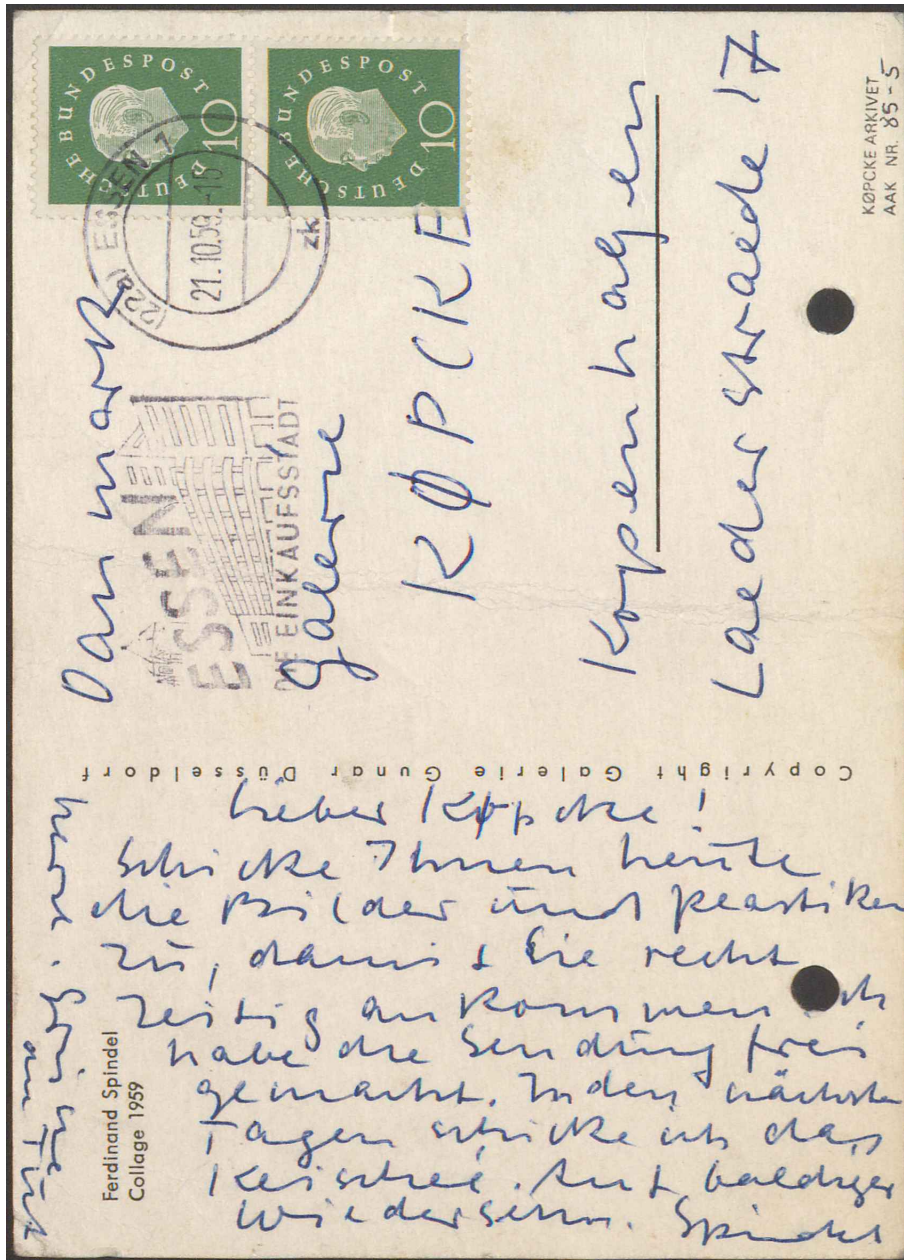 DEUTSCHE BUNDESPOST
10
DEUTSCHE BUNDESPOST
10
(22a) ESSEN 1
21.10.59.-18
zk
ESSEN
DIE EINKAUFSSTADT
Danmark
Galerie
KØPCKE
Kopenhagen
Laederstraede 17
KØPCKE ARKIVET
AAK NR. 85-5
Copyright Galerie Gunar Düsseldorf
Lieber Køpcke!
Schicke Ihnen heute
die Bilder und Plastiken
zu, damit Sie recht
zeitig ankommen. Ich
habe die Sendung frei
gemacht. In den nächsten
Tagen schicke ich das
Kleischee. Auf baldiges
Wiedersehn. Spindel
herzl. Grüsse
an
Ferdinand Spindel
Collage 1959